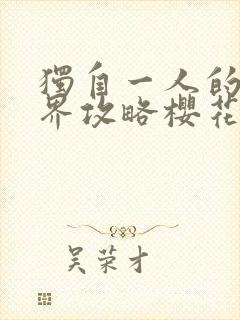 獨自一人的
界攻略櫻花
吴荣才